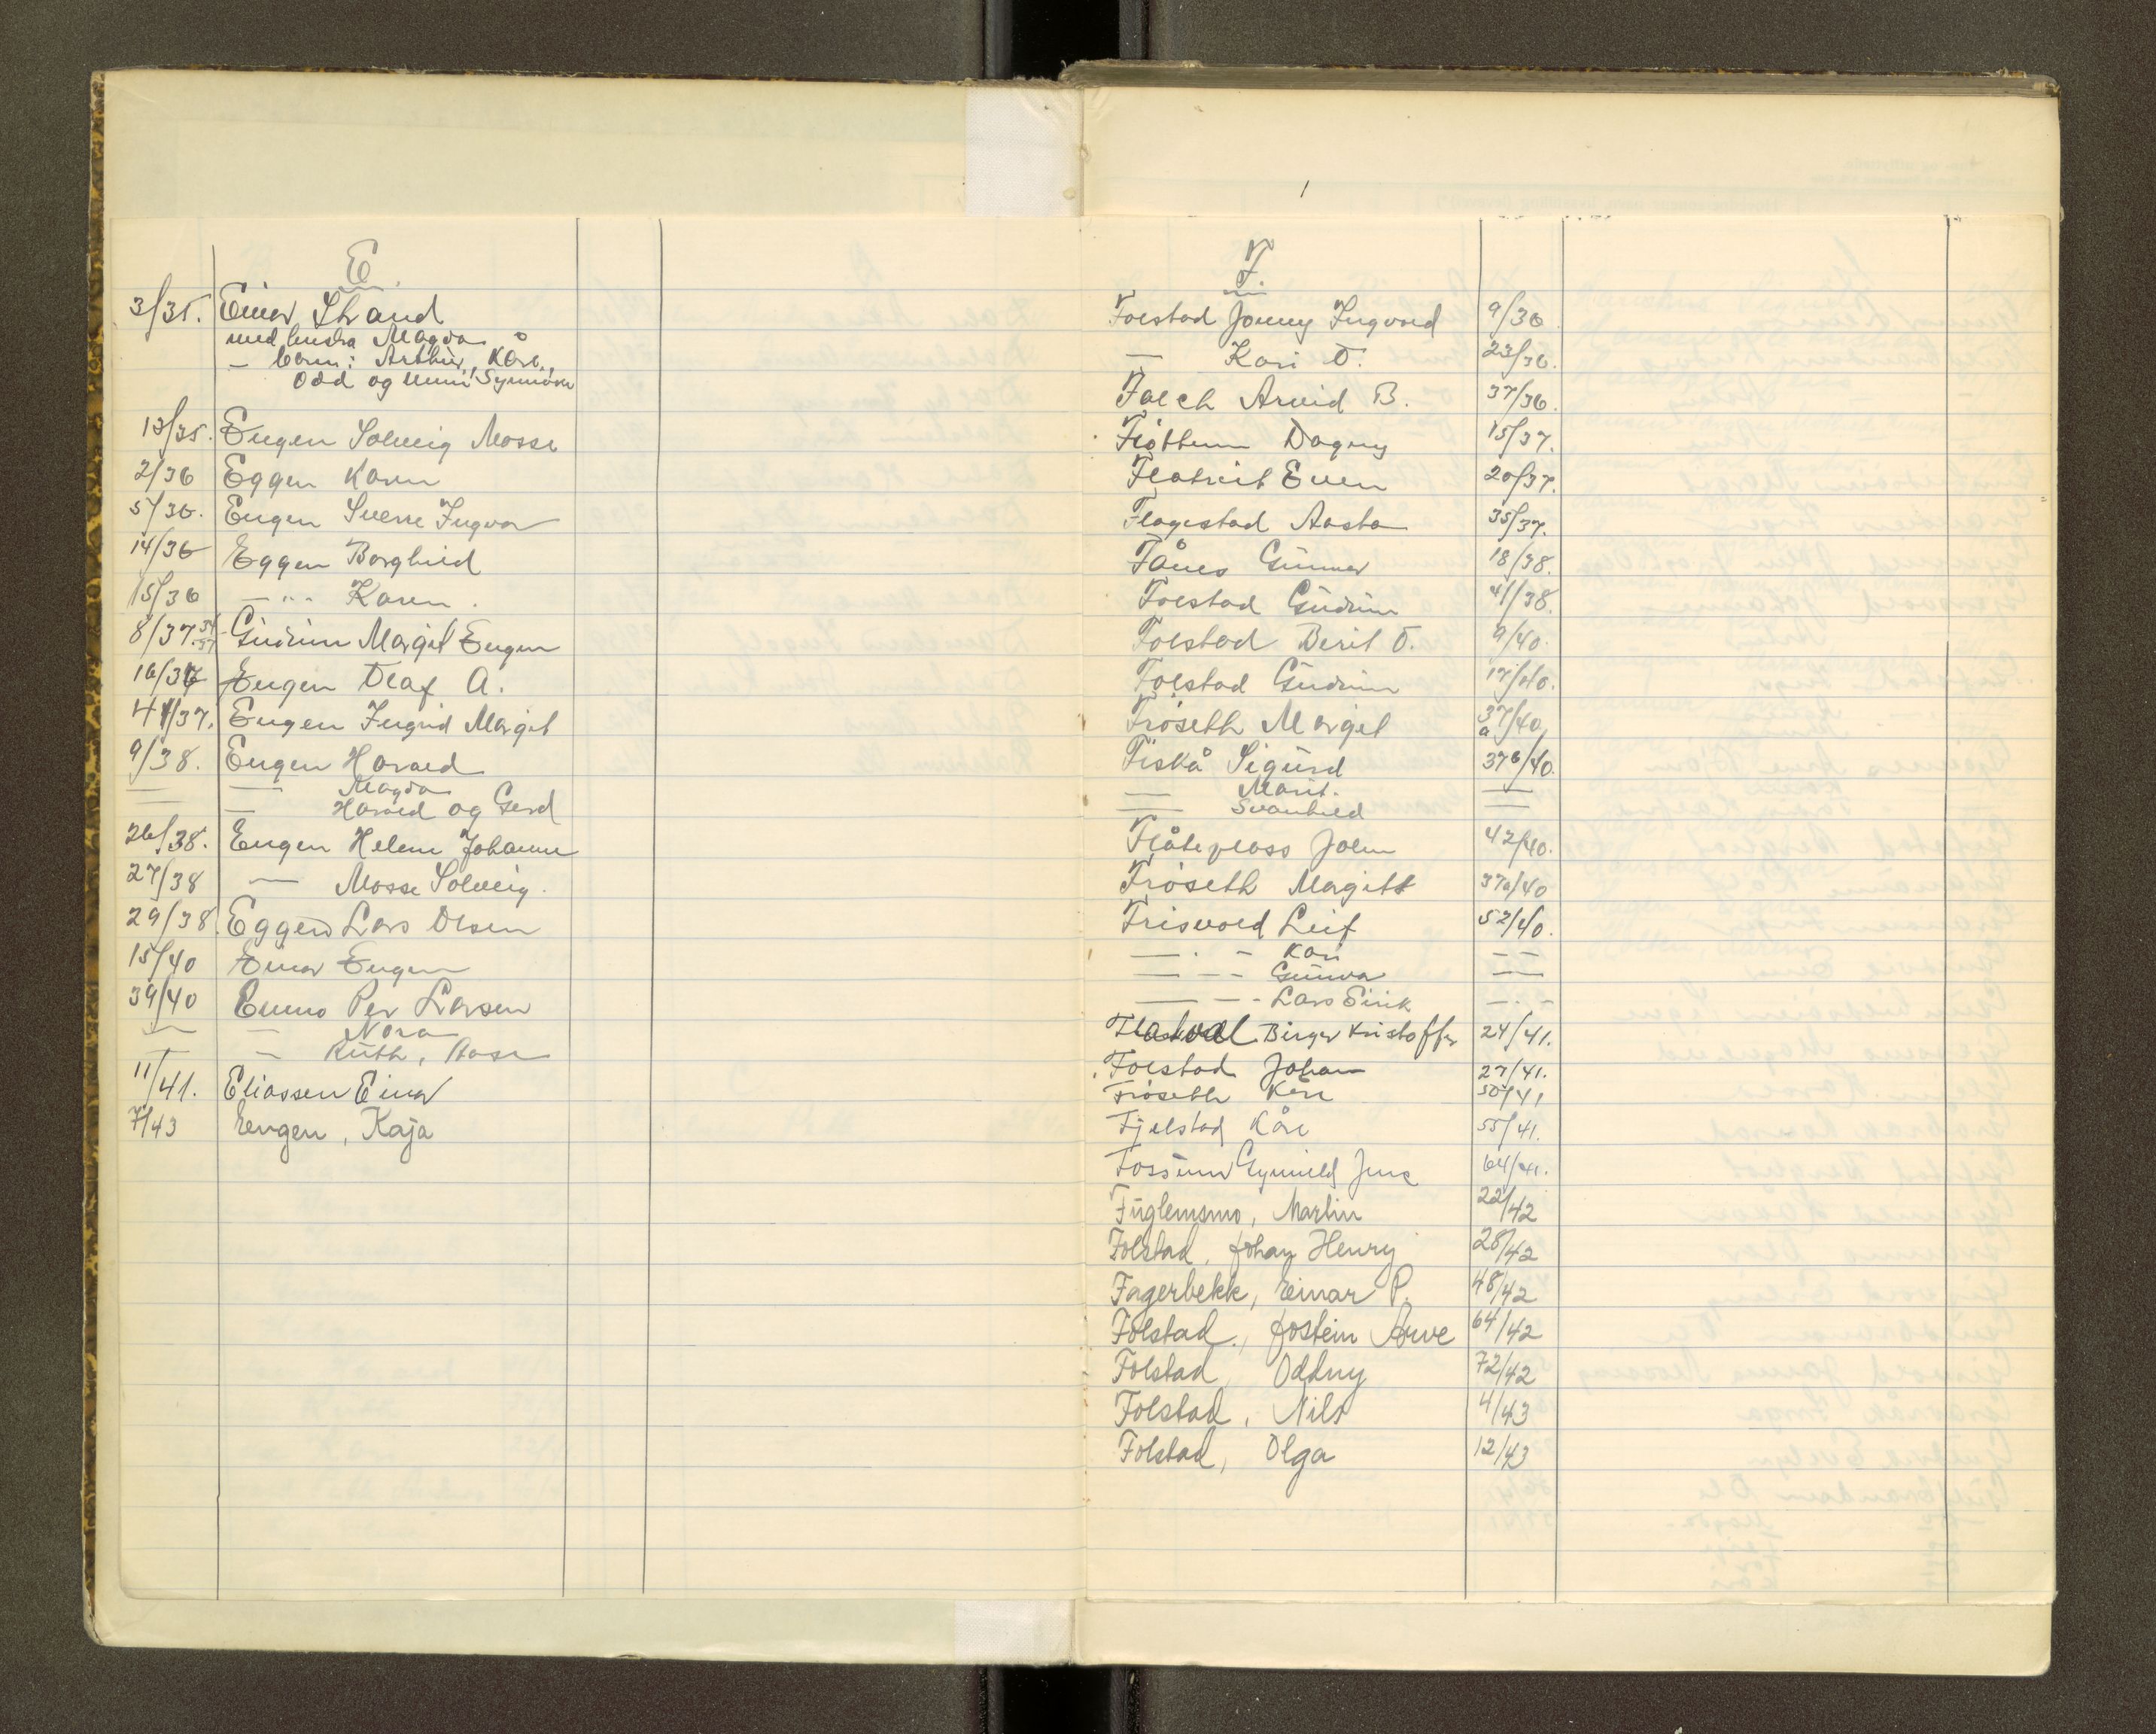 E.
3/35. Einar Strand
med hustru Magda
– barn: Arthur, Kåre,
Odd og Synnöve
13/35. Engen Solveig Mosse
2/36 Eggen Karen
5/36. Engen Sverre Ingvar
14/36 Eggen Borghild
15/36 – „ – Karen.
8/37. Gudrun Margit Engen
16/37 Engen Olaf A.
41/37. Engen Ingrid Margit
9/38. Engen Harald
— — Magda
— — Harald og Gerd
26/38. Engen Helene Johanne
27/38 — Mosse Solveig.
29/38. Eggen Lars Olsen
15/40 Einar Engen
39/40 Enmo Per Larsen
— — Nora
— Ruth, Aase
11/41. Eliassen Einar
7/43 Engen, Kaja
F.
Folstad Jonny Ingvald 9/36
— Kari O. 23/36.
Falch Arvid B. 37/36.
Flöttum Dagny 15/37.
Flatseit Even 20/37.
Flagestad Aasta 35/37.
Fånes Gunnar 18/38.
Folstad Gudrun 41/38.
Folstad Berit O. 9/40.
Folstad Gudrun 17/40.
Fröseth Margit 37a/40
Fiskå Sigurd 37b/40.
— Marit. —
— Svanhild —
Flåteplass John 42/40.
Fröseth Magitt 37a/40
Frisvold Leif 52/40.
— . – Kari — —
— – – Gunvor — —
— – – Lars Eirik — . –
Flatval Birger Kristoffer 24/41.
Folstad Johan 27/41.
Fröseth Kåre 50/41
Fjelstad Kåre 55/41.
Fossum Gunnild Jens 64/41.
Fuglemsmo, Martin 22/42
Folstad, Johan Henry 28/42
Fagerbekk, Einar P. 48/42
Folstad, Jostein Arve 64/42
Folstad, Oddny 72/42
Folstad, Nils 4/43
Folstad, Olga 12/43